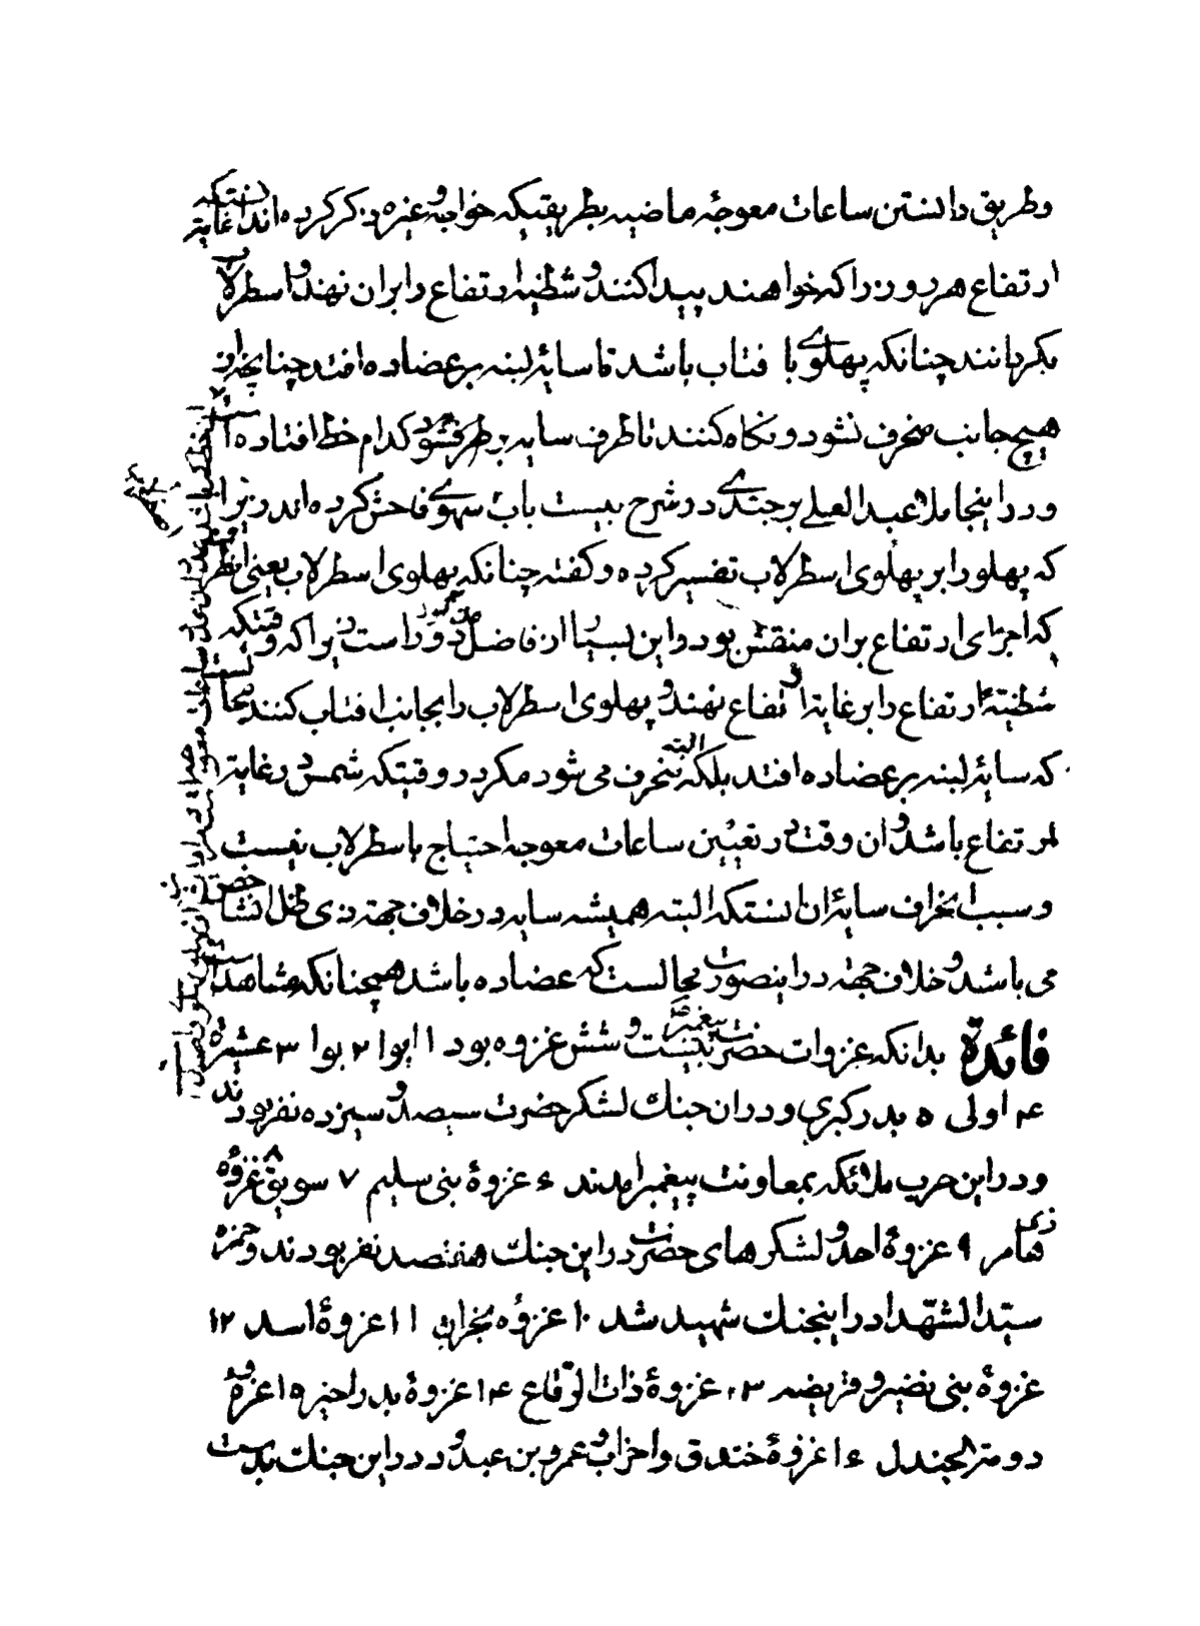 وطریق دانستن ساعات معوجهٔ ماضیه بطریقیکه خواجه و غیره ذکر کرده اند انستکه غایة
ارتفاع هر روز را که خواهند پیدا کنند و شظیهٔ ارتفاع را بران نهند و اسطرلاب
بگردانند چنانکه پهلوی با فتاب باشد تا سایهٔ لبنه بر عضاده افتد چنانچه از
هیچ جانب منحرف نشود و نگاه کنند تا طرف سایه بر کدام خط افتاده
و در اینجا ملا عبد العلی برجندی در شرح بیست باب سهوی فاحش کرده اند زیرا
که پهلو را بر پهلوی اسطرلاب تفسیر کرده و گفته چنانکه پهلوی اسطرلاب یعنی انطرف
که اجزای ارتفاع بران منقش بود و این بسیار از فاضل مذکور دور است زیرا که وقتیکه
شظیهٔ ارتفاع را بر غایة ارتفاع نهند و پهلوی اسطرلاب را بجانب افتاب کنند محالست
که سایهٔ لبنه بر عضاده افتد بلکه البته منحرف می شود مگر در وقتیکه شمس در غایة
ارتفاع باشد و ان وقت در تعیین ساعات معوجه احتیاج باسطرلاب نیست
و سبب انحراف سایهٔ ان انستکه البته همیشه سایه در خلاف جهة ذی ظل
می باشد و خلاف جهة در اینصورت محالست که عضاده باشد همچنانکه مشاهد است
فائدة بدانکه غزوات حضرت پیغمبر بیست و شش غزوه بود ۱ ابوا ۲ بوا ۳ عشیره
۴ اولی ۵ بدر کبری و دران جنك لشکر حضرت سیصد و سیزده نفر بودند
و در این حرب ملائکه بمعاونت پیغمبر امدند ۶ غزوهٔ بنی سلیم ۷ سویق ۸ غزوه
ذی امر ۹ غزوهٔ احد و لشکرهای حضرت در این جنك هفتصد نفر بودند و حمزه
سید الشهدا در اینجنك شهید شد ۱۰ غزوه نجران ۱۱ غزوهٔ اسد ۱۲
غزوهٔ بنی نضیر و قریضه ۱۳ غزوهٔ ذات الرقاع ۱۴ غزوهٔ بدر اخیر ۱۵ غزوه
دومة الجندل ۱۶ غزوهٔ خندق و احزاب و عمرو بن عبدود در این جنك بدست